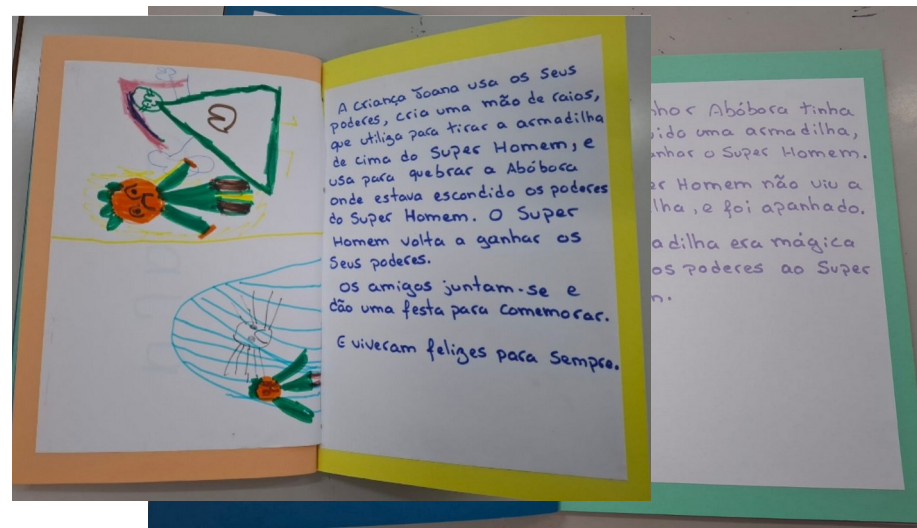 A criança Joana usa os seus
poderes, cria uma mão de raios,
que utiliza para tirar a armadilha
de cima do Super Homem, e
usa para quebrar a Abóbora
onde estava escondido os poderes
do Super Homem. O Super
Homem volta a ganhar os
seus poderes.
Os amigos juntam-se e
dão uma festa para comemorar.
E viveram felizes para sempre.
Abóbora tinha
uma armadilha,
o Super Homem.
Homem não viu a
e foi apanhado.
era mágica
os poderes ao Super